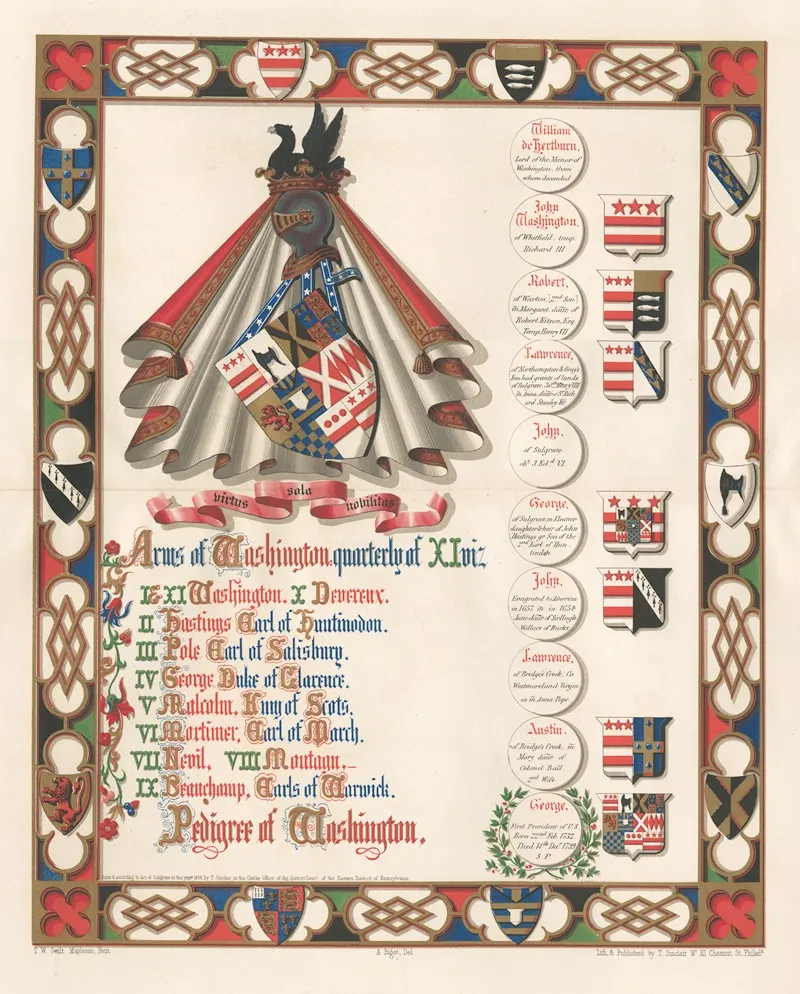 virtus sola nobilitas
Arms of Washington quarterly of XI viz
I & XI Washington. X Devereux.
II Hastings Earl of Huntinodon.
III Pole Earl of Salisbury.
IV George Duke of Clarence.
V Malcolm, King of Scots.
VI Mortimer, Earl of March.
VII Nevil, VIII Montagu,
IX Beauchamp, Earls of Warwick.
Pedigree of Washington.
William
de Hertburn,
Lord of the Manor of
Washington, from
whom decended
John
Washington,
of Whitfield, temp.
Richard III
Robert,
of Warton, 2nd Son
m Margaret, daür of
Robert Kitson, Esq.
Temp. Henry VII
Lawrence,
of Northampton & Grays
Inn had grants of lands
of Sulgrave, 30th Henry VIII
m Anna, daür of
John,
of Sulgrave
ob. 3 Ed. VI.
George,
of Sulgrave, m Eleanor
daughter & heir of John
Hastings gr Son of the
2nd Earl of Hun
tindon
John,
Emigrated to America
in 1657, m. in 1654
Jane daür of
Wallace of Bucks
Lawrence,
of Bridge's Creek, Co
Westmoreland Virgin
ia m Anna Pope
Austin.
of Bridge's Creek, m
Mary daür of
Colonel Ball
2nd Wife
George,
First President of U.S.
Born 22nd Feb. 1732
Died 14th Decr 1799
S P
according to Act of Congress in the year 1858 by T Sinclair, in the Clerks Office of the District Court of the Eastern District of Pennsylvania
T. W. Gwilt Mapleson, Pinxt.
A. Rigot, Del
Lith. & Published by T. Sinclair No 311 Chesnut St. Philada